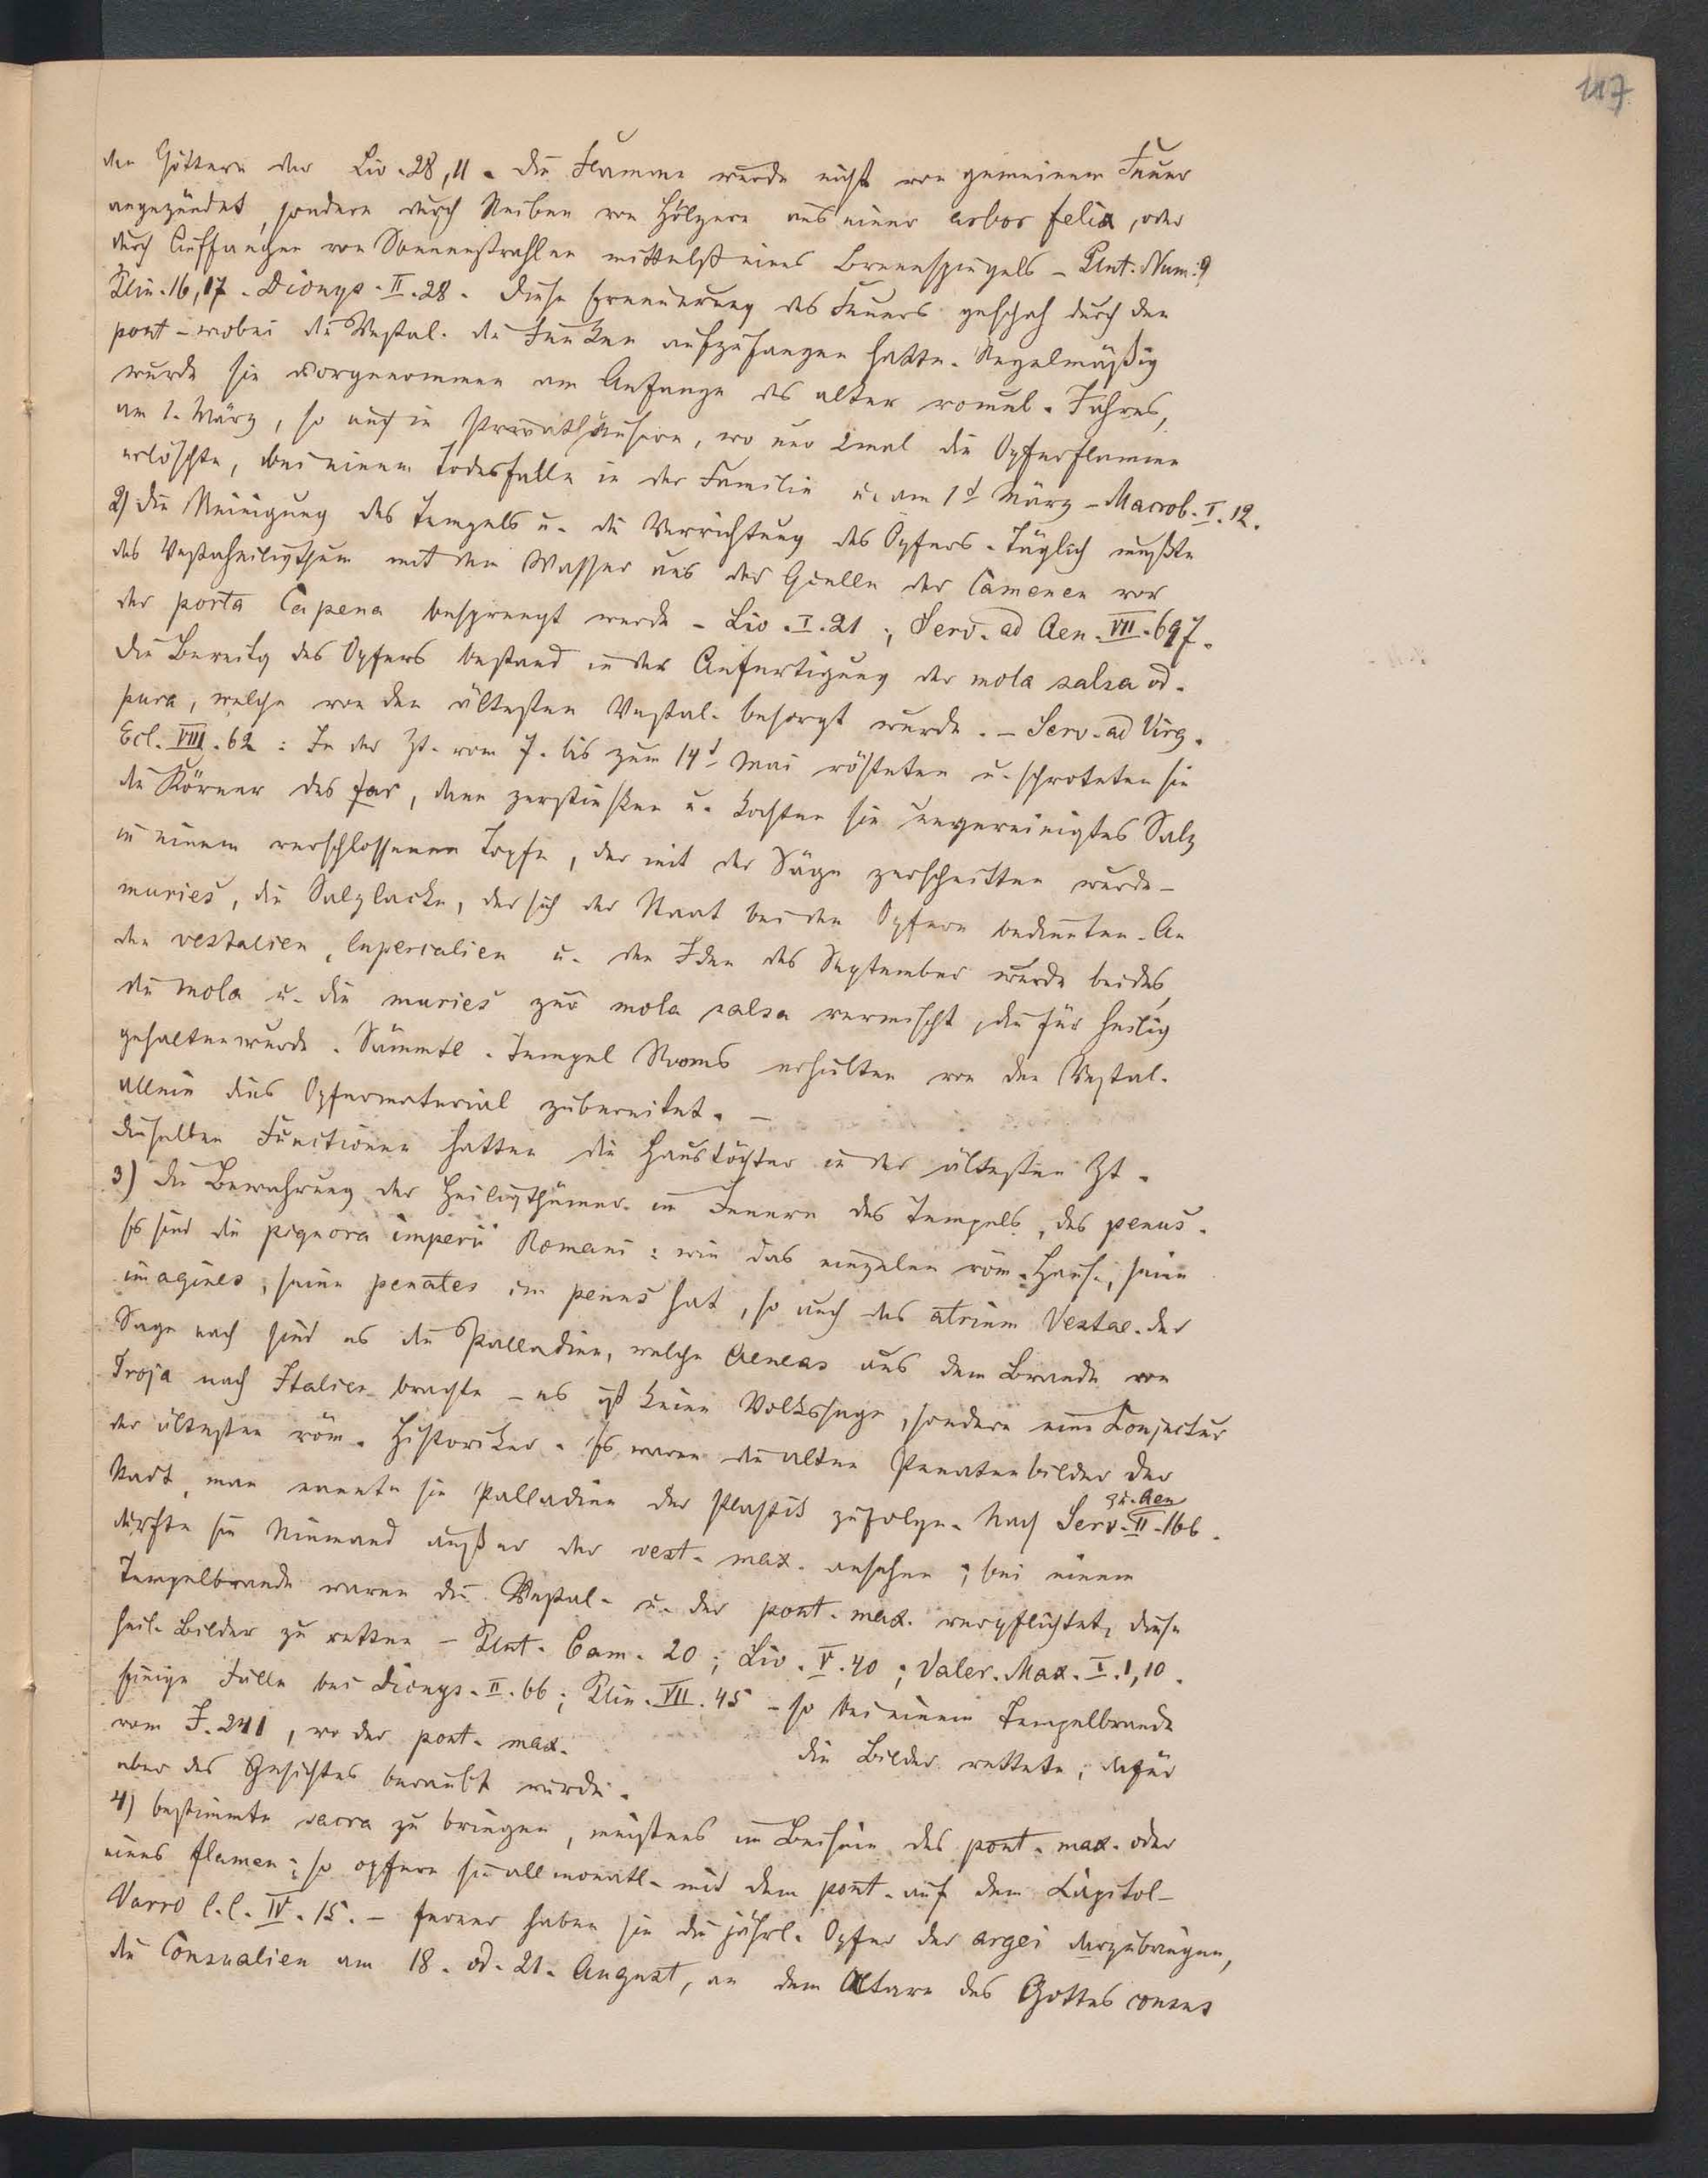 117
den Göttern der Liv. 28, 11. Die Flamme wurde nicht von gemeinem Feuer
angezündet, sondern durch Reiben von Hölzern aus einer arbor felix, oder
durch Auffangen von Sonnenstrahlen mittelst eines Brennspiegels – Plut. Num. 9
Plin. 16, 17. Dionys. II. 28. Diese Erneuerung des Feuers geschah durch den
pont – wobei die Vestal. die Funken aufzufangen hatte. Regelmäßig
wurde sie vorgenommen am Anfange des alten romul. Jahres,
am 1. März, so auch in Privathäusern, wo nur 2mal die Opferflamme
erlöschte, bei einem Todesfalle in der Familie u. am 1t März – Macrob. I. 12.
2) die Reinigung des Tempels u. die Verrichtung des Opfers. Täglich mußte
das Vestaheiligthum mit dem Wasser aus der Quelle der Camenen vor
der porta Capena besprengt werde – Liv. I. 21; Serv. ad Aen. VII. 697.
Die Bereitg des Opfers bestand in der Anfertigung der mola salsa od.
pura, welche von den ältesten Vestal. besorgt wurde. – Serv. ad Virg.
Ecl. VIII. 62: In der Zt. vom 7. bis zum 14t Mai rösteten u. schroteten sie
die Körner des far, dann zerstießen u. kochten sie ungereinigtes Salz
in einem verschlossenen Topfe, der mit der Säge zerschnitten wurde –
muries, die Salzlacke, der sich der Staat bei den Opfern bedienten. An
den vestalien, lupercalien u. den Iden des September wurde beides,
die mola u. die muries zur mola salsa vermischt, die für heilig
gehalten wurde. Sämmtl. Tempel Roms erhielten von den Vestal.
allein dies Opfermaterial zubereitet. –
dieselben Functionen hatten die Haustöchter in der ältesten Zt.
3) die Bewahrung der Heiligthümer im Innern des Tempels, des penus.
Es sind die pignora imperii Romani: wie das einzelne röm. Haus, seine
imagines, seine penates im penus hat, so auch das atrium Vestae. Der
Sage nach sind es die Palladien, welche Aeneas aus dem Brande von
Troja nach Italien brachte – es ist keine Volkssage, sondern eine Conjectur
der ältesten röm. Historiker. Es waren die alten Penatenbilder der
Stadt, man nannte sie Palladien der Plastik zufolge. Nach Serv. zu Aen II. 166.
durfte sie Niemand außer der vest. max. ansehen; bei einem
Tempelbrande waren die Vestal. u. der pont. max. verpflichtet, diese
heil. Bilder zu retten – Plut. Cam. 20; Liv. V. 40; Valer. Max. I. 1, 10.
Einige Fälle bei Dionys. II. 66; Plin. VII. 45 – so bei einem Tempelbrande
vom J. 241, wo der pont. max. die Bilder rettete, dafür
aber des Gesichtes beraubt wurde.
4) bestimmte sacra zu bringen, meistens im Beisein des pont. max. oder
eines flamen; so opfern sie allmonatl. mit dem pont. auf dem Capitol –
Varro l. l. IV. 15. – ferner haben sie die jährl. Opfer der argei darzubringen,
die Consualien am 18. od. 21. August, an dem Altare des Gottes consus